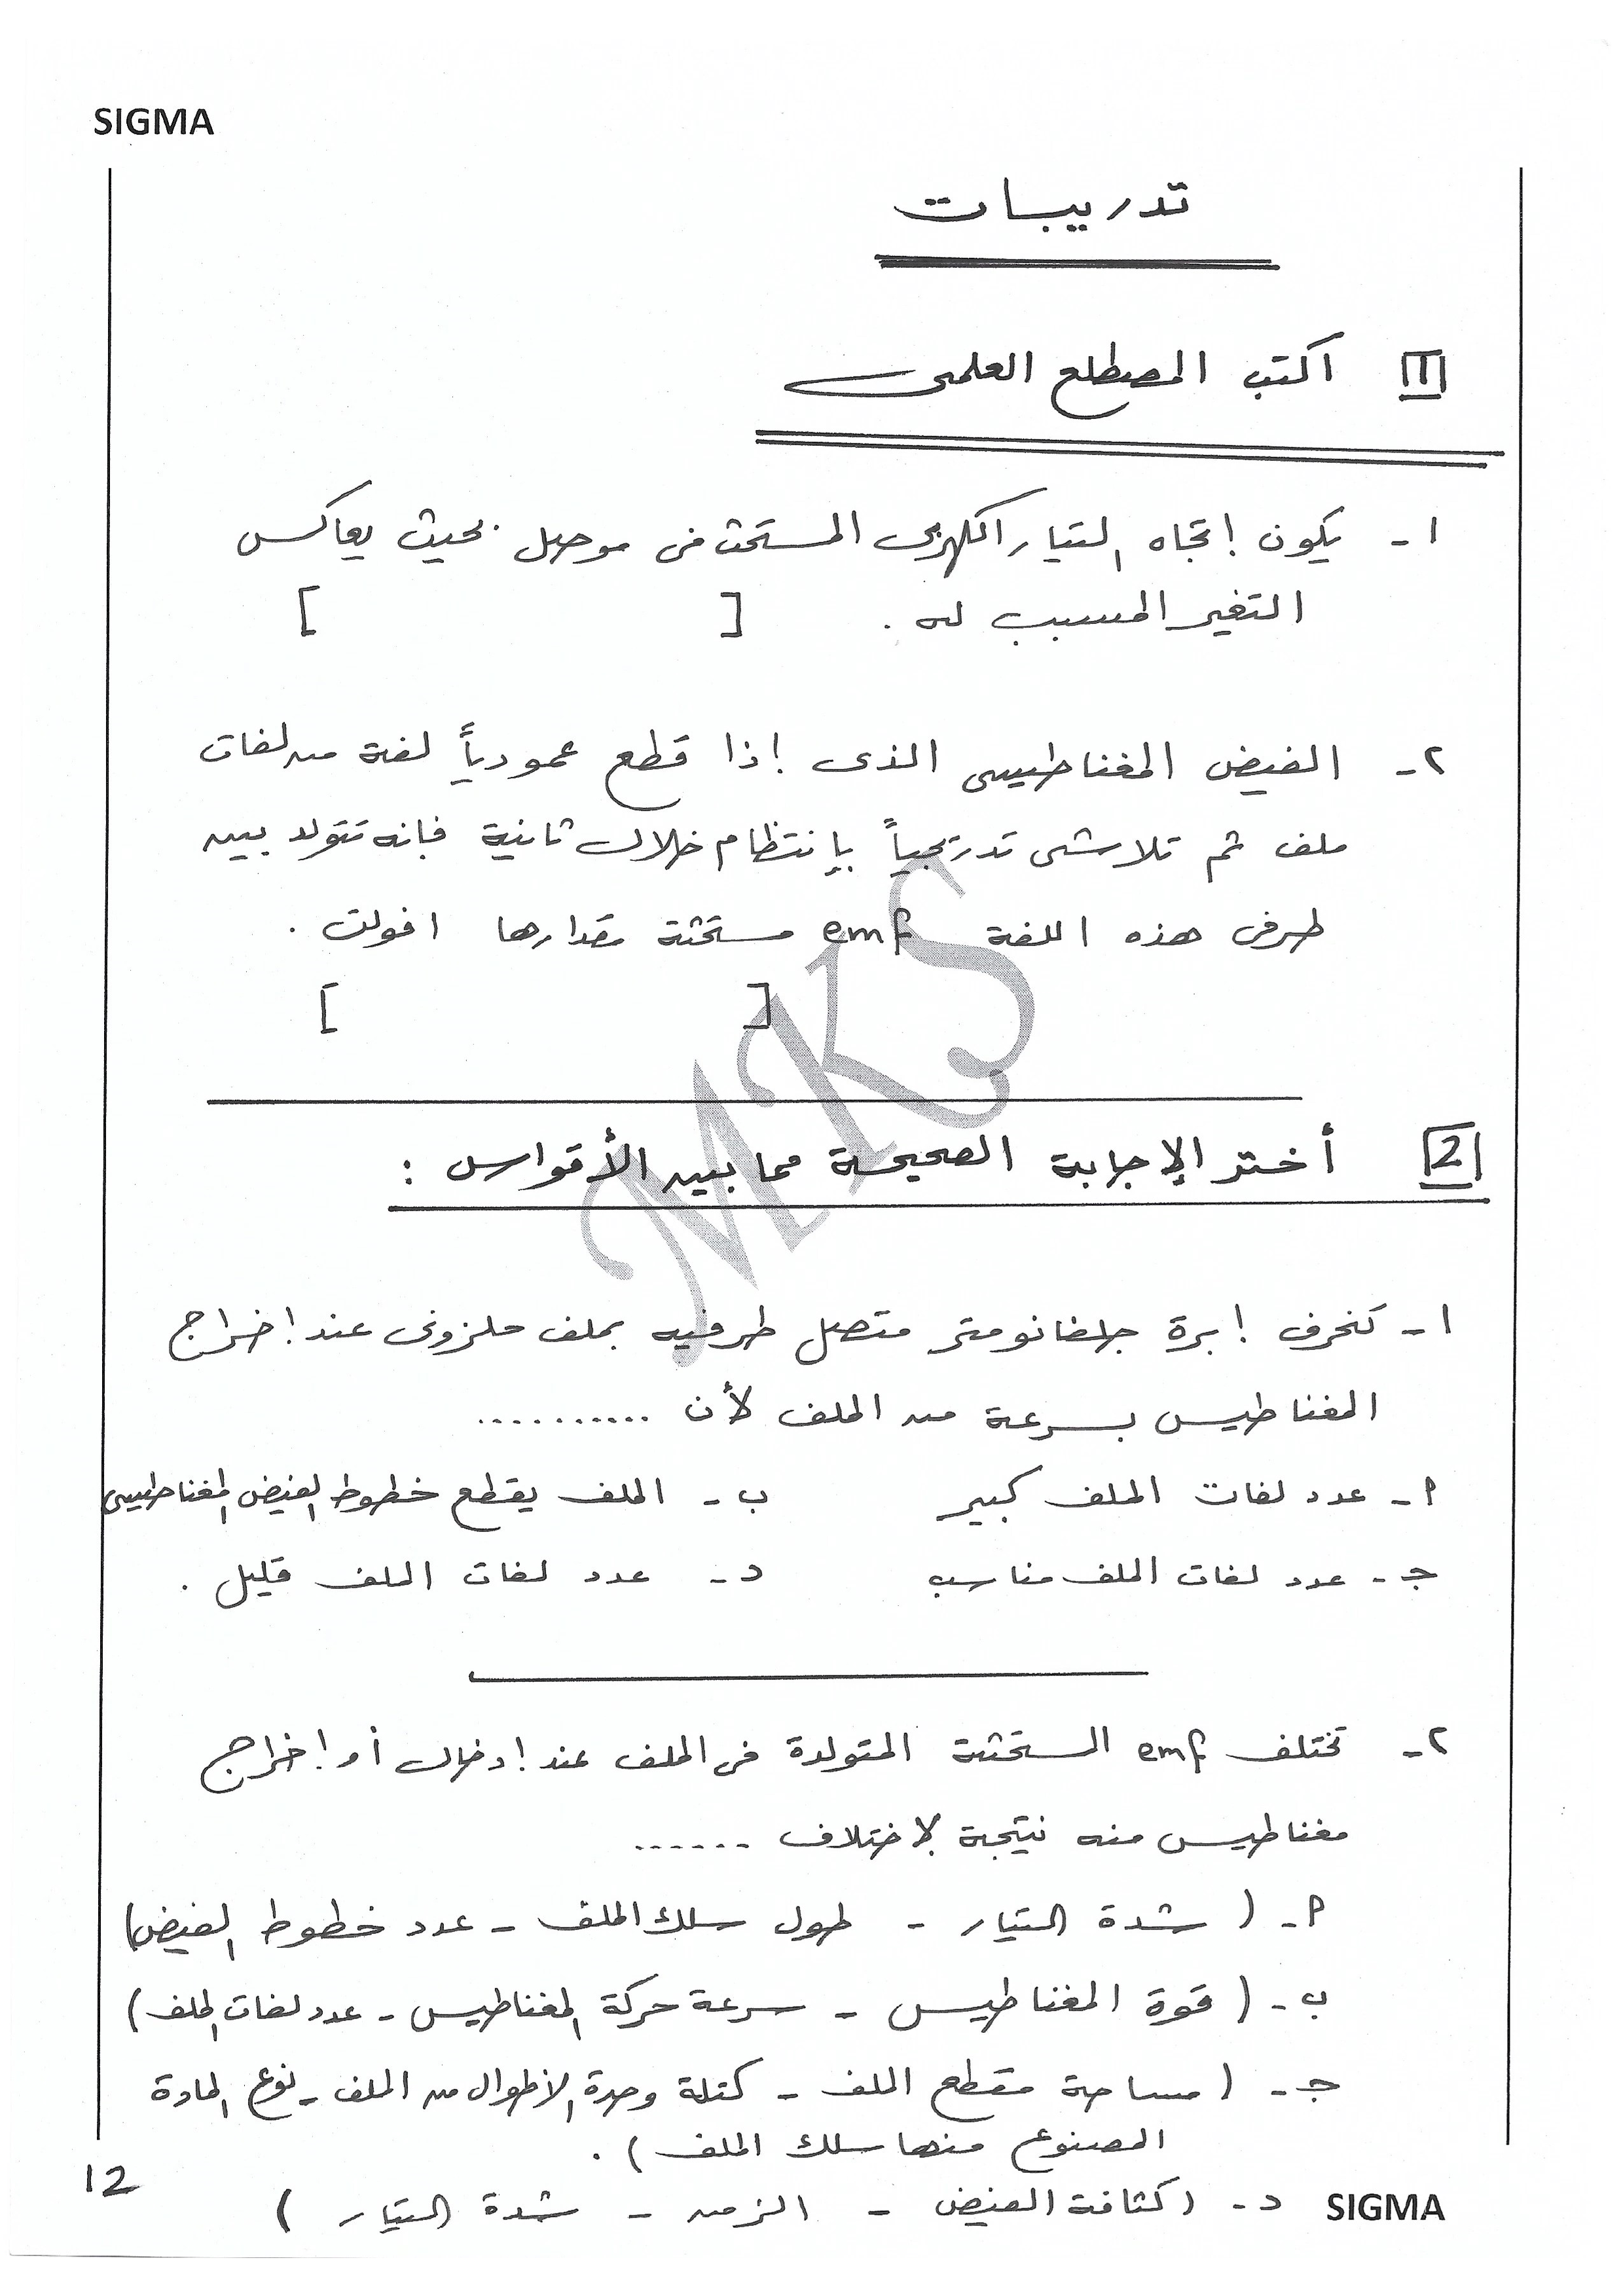 SIGMA
تدريبات
1 اكتب المصطلح العلمى
١ـ يكون إتجاه التيار الكهربى المستحث فى موصل بحيث يعاكس
التغير المسبب له . [ ]
٢ـ الفيض المغناطيسى الذى إذا قطع عمودياً لفة من لفات
ملف ثم تلاشى تدريجياً بإنتظام خلال ثانية فإنه تتولد بين
طرفى هذه اللفة emf مستحثة مقدارها ١ فولت .
[ ]
MKS
2 أختر الإجابة الصحيحة مما بين الأقواس :
١ـ تنحرف إبرة جلفانومتر متصل طرفيه بملف حلزونى عند إخراج
المغناطيس بسرعة من الملف لأن ..........
أ ـ عدد لفات الملف كبير ب ـ الملف يقطع خطوط الفيض المغناطيسى
جـ ـ عدد لفات الملف مناسب د ـ عدد لفات الملف قليل .
٢ـ تختلف emf المستحثة المتولدة فى الملف عند إدخال أو إخراج
مغناطيس منه نتيجة لإختلاف ......
أ ـ ( شدة التيار ـ طول سلك الملف ـ عدد خطوط الفيض )
ب ـ ( قوة المغناطيس ـ سرعة حركة المغناطيس ـ عدد لفات الملف )
جـ ـ ( مساحة مقطع الملف ـ كتلة وحدة الأطوال من الملف ـ نوع المادة
المصنوع منها سلك الملف ) .
د ـ ( كثافة الفيض ـ الزمن ـ شدة التيار )
12
SIGMA